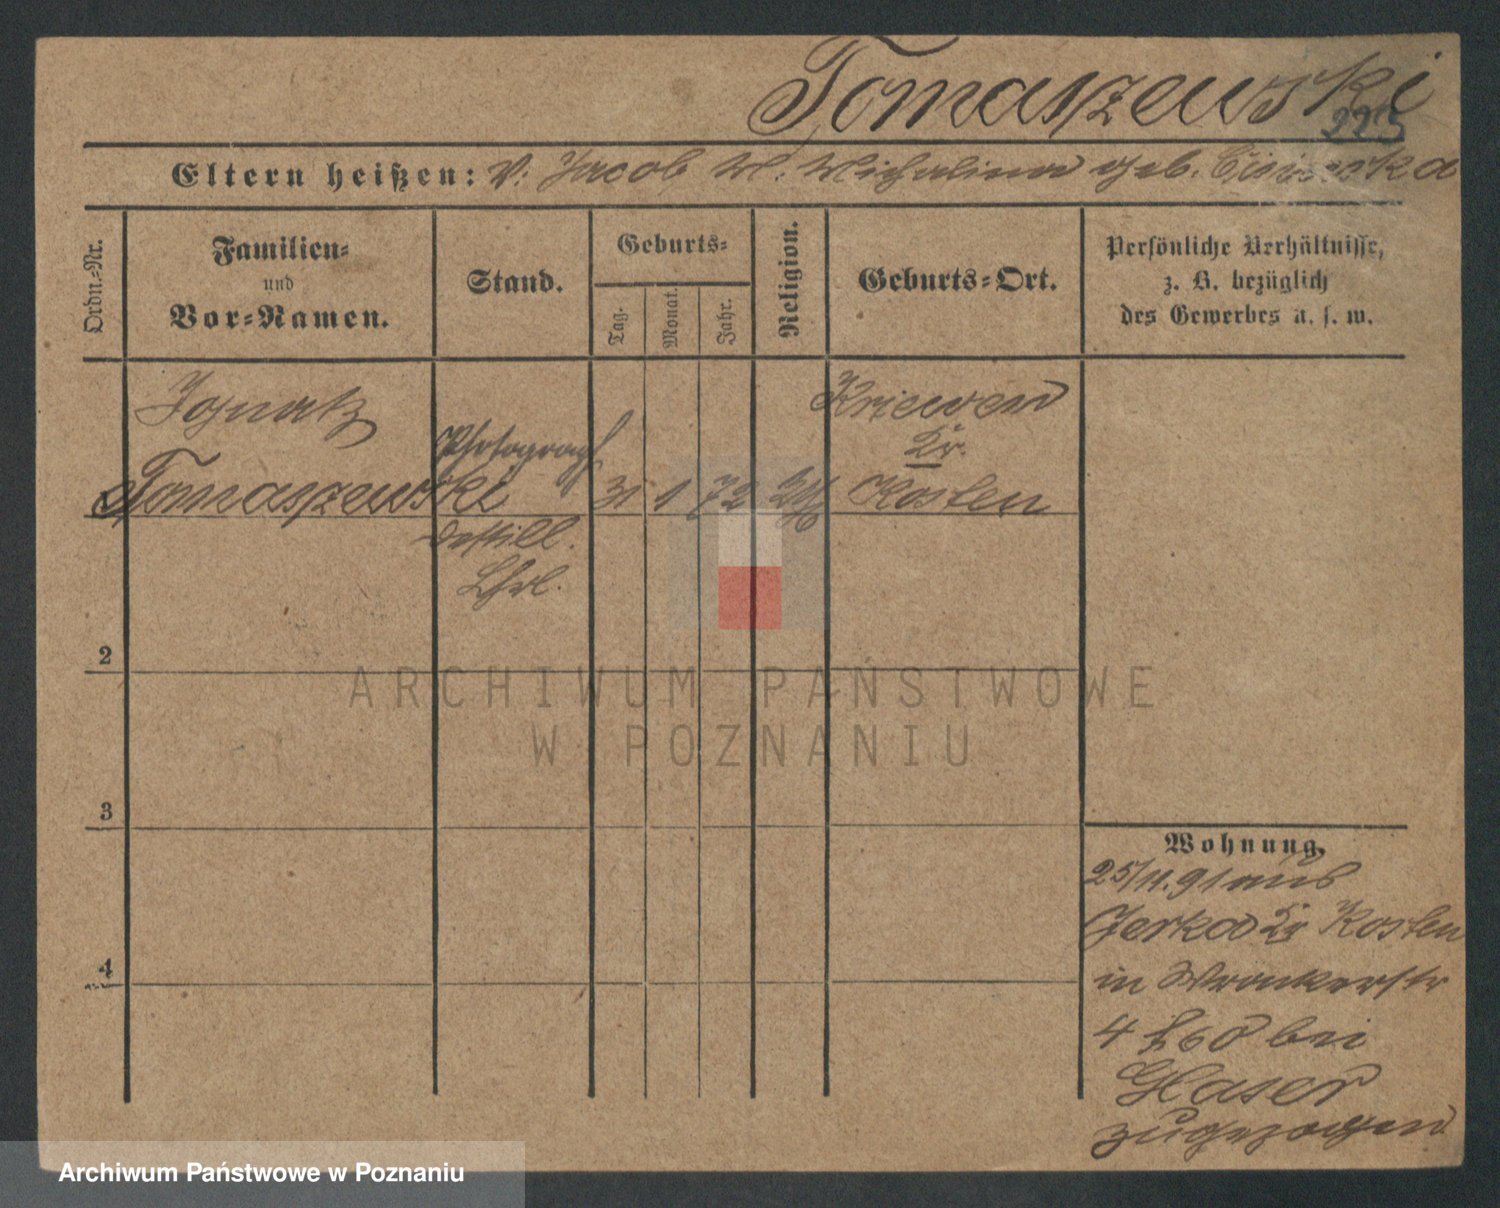 Tomaszewski
225
Eltern heißen: V. Jacob M. Michalina geb.
Ordn.-Nr.
Familien-
und
Vor-Namen.
Stand.
Geburts-
Tag.
Monat.
Jahr.
Religion.
Geburts-Ort.
Persönliche Verhältnisse,
z. B. bezüglich
des Gewerbes u. s. w.
Ignatz
Tomaszewski
Photograph
Destill.
Lhrl.
31
1
72
Kriewen
Kr.
Kosten
2
3
4
Wohnung.
25/11.91 aus
Jerka Kr Kosten
in Wronkerstr
4 bei
Glaser
zugezogen
ARCHIWUM PAŃSTWOWE
W POZNANIU
Archiwum Państwowe w Poznaniu